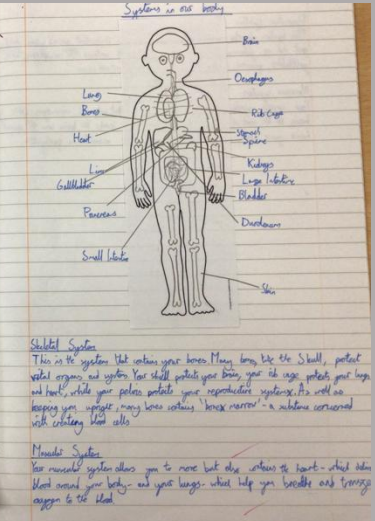 Systems in our body
Brain
Oesophagus
Lungs
Bones
Rib Cage
Heart
Stomach
Spine
Liver
Kidneys
Gallbladder
Large Intestine
Bladder
Pancreas
Duodenum
Small Intestine
Skin
Skeletal System
This is the system that contains your bones. Many bones, like the Skull, protect
vital organs and systems. Your skull protects your brain, your rib cage protects your lungs
and heart, while your pelvis protects your reproductive systems. As well as
keeping you upright, many bones contain "bone marrow" - a substance concerned
with creating blood cells
Muscular System
Your muscular system allows you to move but also contains the heart - which
blood around your body - and your lungs - which help you breathe and
oxygen to the blood